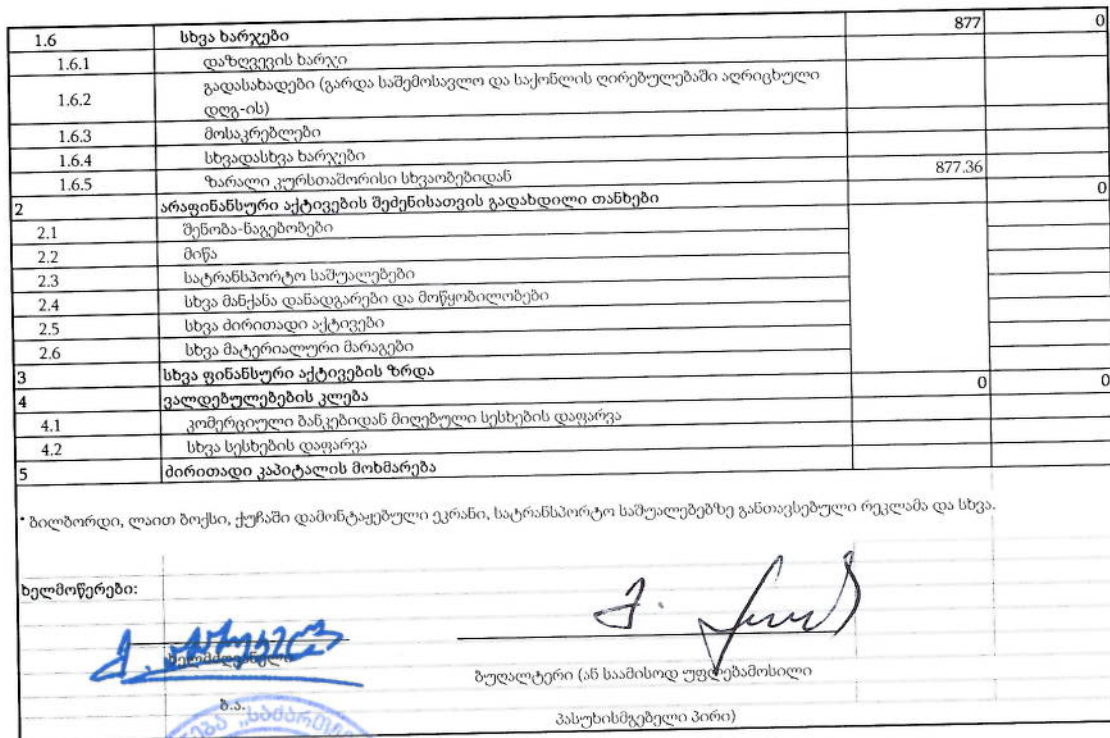 1.6 სხვა ხარჯები 877 0
1.6.1 დაზღვევის ხარჯი
1.6.2 გადასახადები (გარდა საშემოსავლო და საქონლის ღირებულებაში აღრიცხული
დღგ-ის)
1.6.3 მოსაკრებლები
1.6.4 სხვადასხვა ხარჯები
1.6.5 ზარალი კურსთაშორისი სხვაობებიდან 877.36
2 არაფინანსური აქტივების შეძენისათვის გადახდილი თანხები 0
2.1 შენობა-ნაგებობები
2.2 მიწა
2.3 სატრანსპორტო საშუალებები
2.4 სხვა მანქანა დანადგარები და მოწყობილობები
2.5 სხვა ძირითადი აქტივები
2.6 სხვა მატერიალური მარაგები
3 სხვა ფინანსური აქტივების ზრდა
4 ვალდებულებების კლება 0 0
4.1 კომერციული ბანკებიდან მიღებული სესხების დაფარვა
4.2 სხვა სესხების დაფარვა
5 ძირითადი კაპიტალის მოხმარება
* ბილბორდი, ლაით ბოქსი, ქუჩაში დამონტაჟებული ეკრანი, სატრანსპორტო საშუალებებზე განთავსებული რეკლამა და სხვა.
ხელმოწერები:
ხელმძღვანელი
ბუღალტერი (ან საამისოდ უფლებამოსილი
ბ.ა.
პასუხისმგებელი პირი)